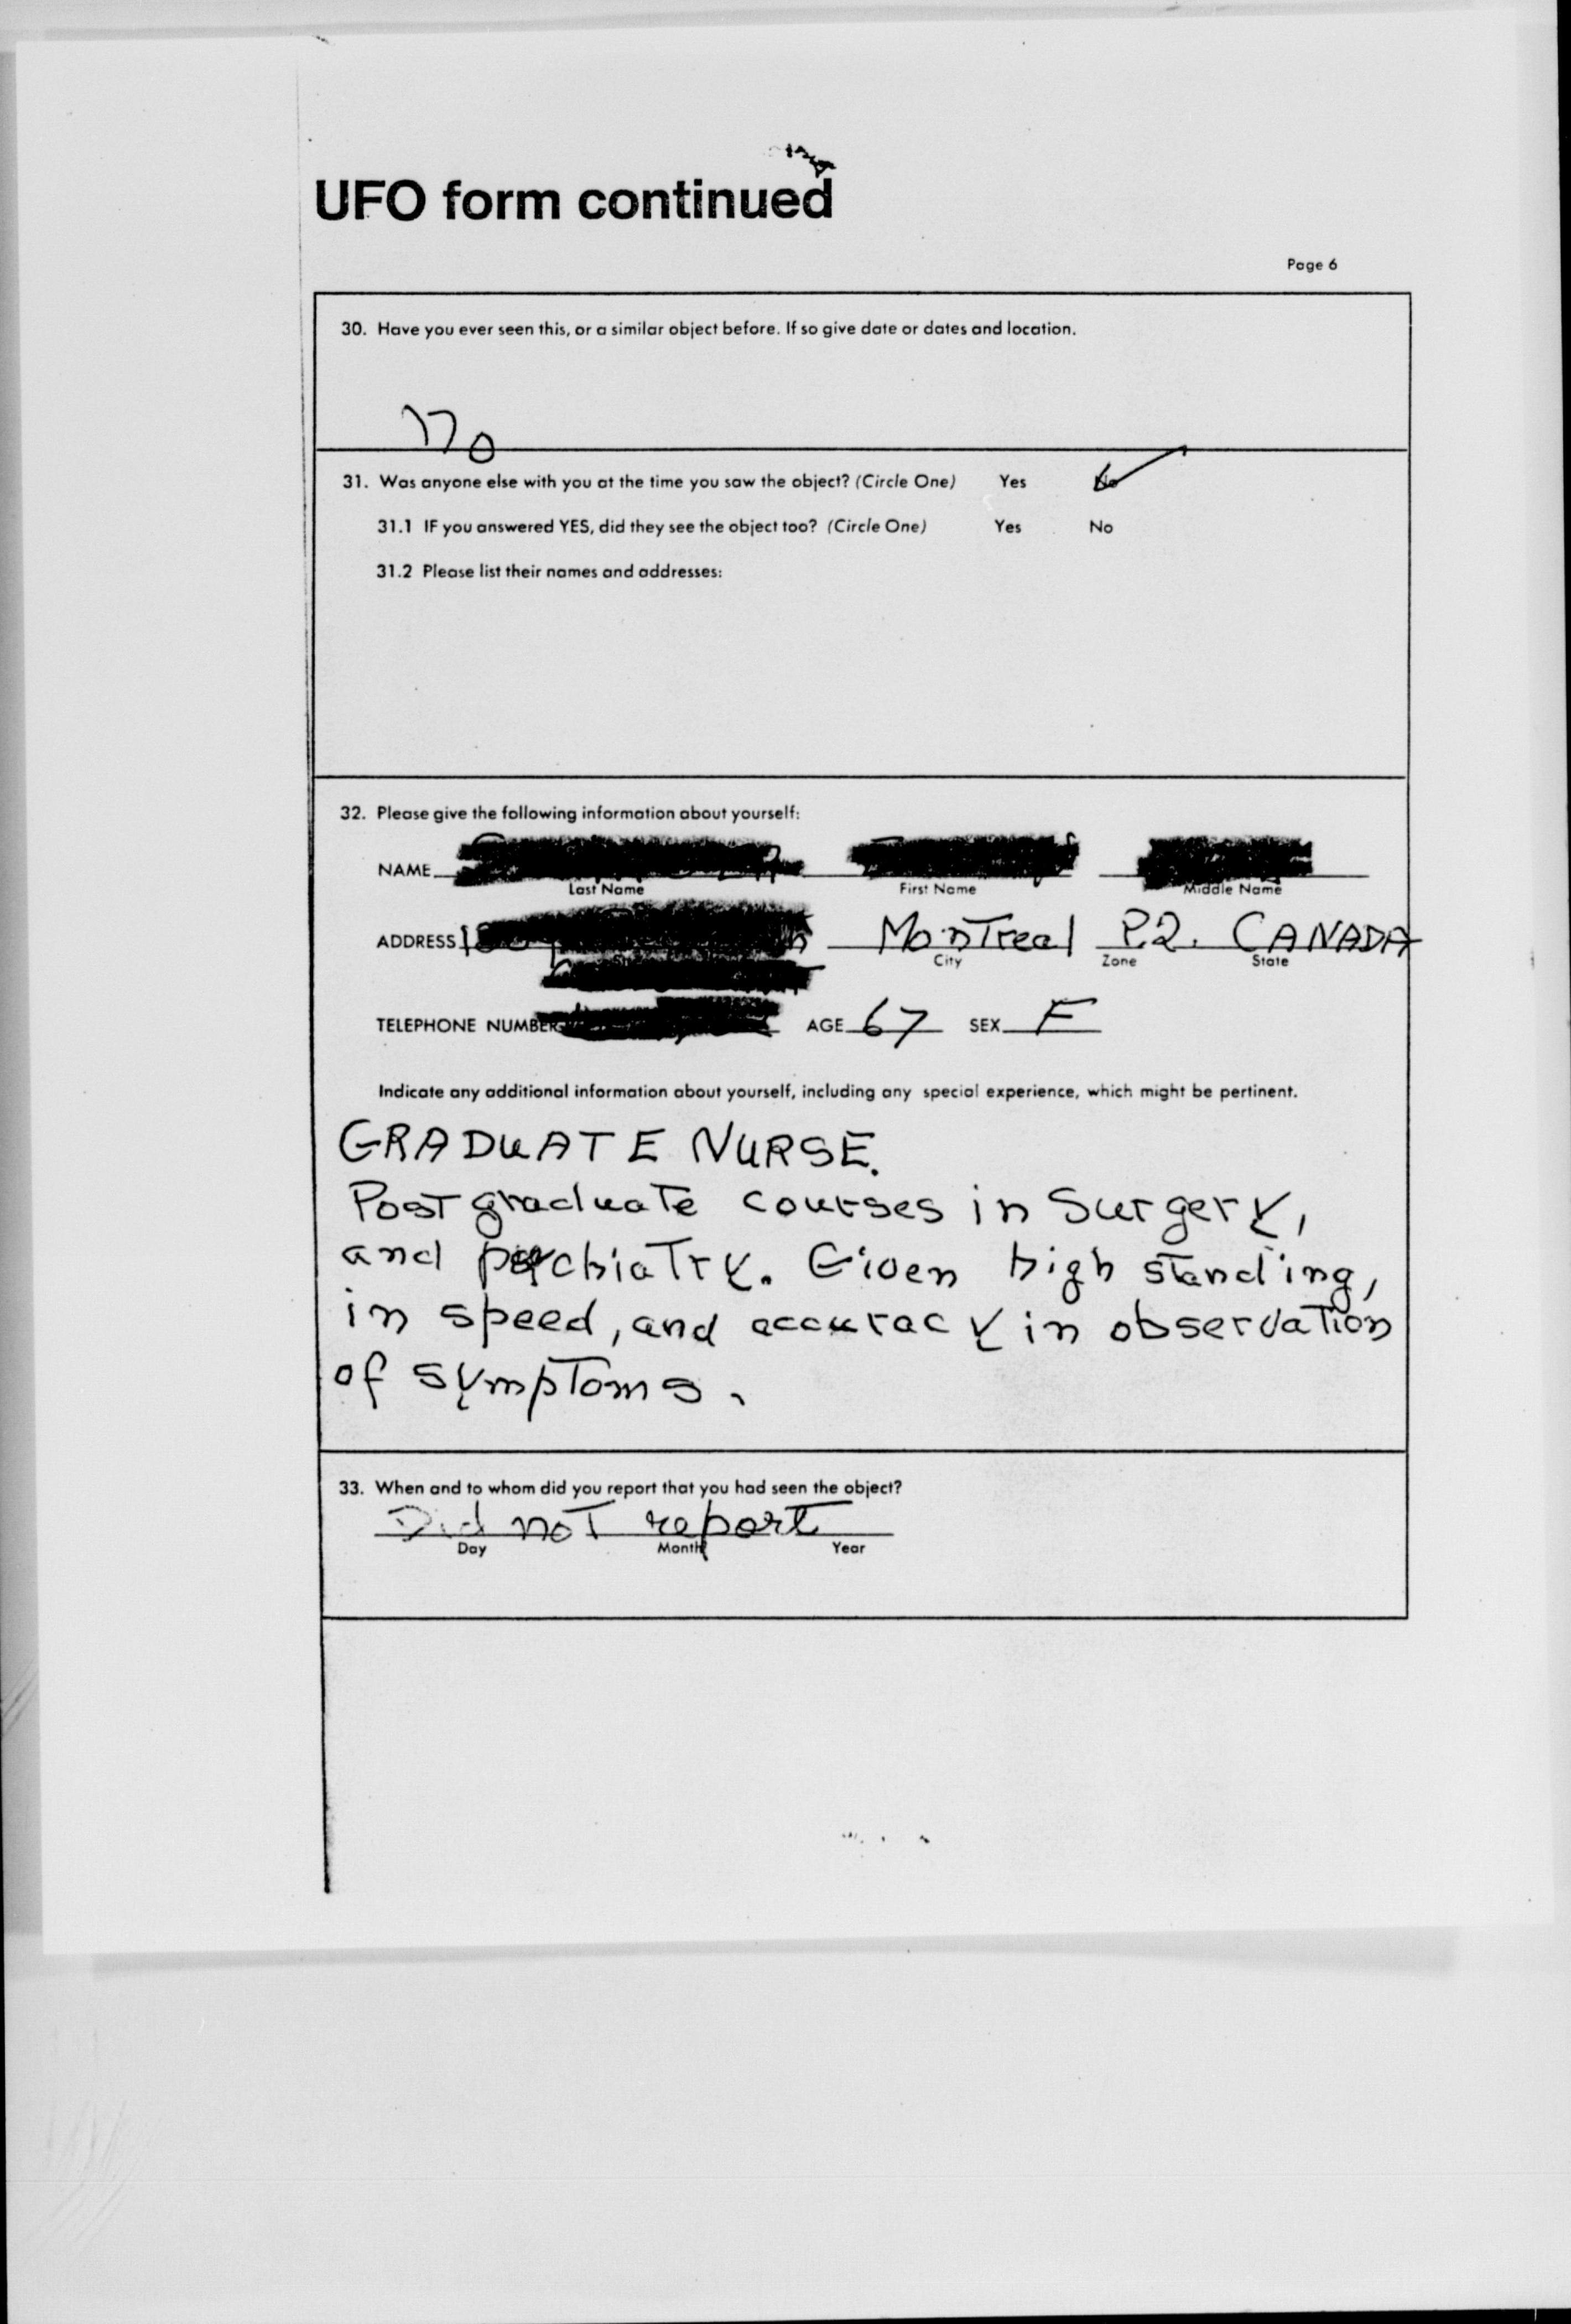 UFO form continued
Page 6
30. Have you ever seen this, or a similar object before. If so give date or dates and location.
No
31. Was anyone else with you at the time you saw the object? (Circle One) Yes No
31.1 IF you answered YES, did they see the object too? (Circle One) Yes No
31.2 Please list their names and addresses:
32. Please give the following information about yourself:
NAME
Last Name First Name Middle Name
ADDRESS Montreal P.Q. CANADA
City Zone State
TELEPHONE NUMBER AGE 67 SEX F
Indicate any additional information about yourself, including any special experience, which might be pertinent.
GRADUATE NURSE.
Post graduate courses in Surgery,
and psychiatry. Given high standing,
in speed, and accuracy in observation
of symptoms.
33. When and to whom did you report that you had seen the object?
Did not report
Day Month Year